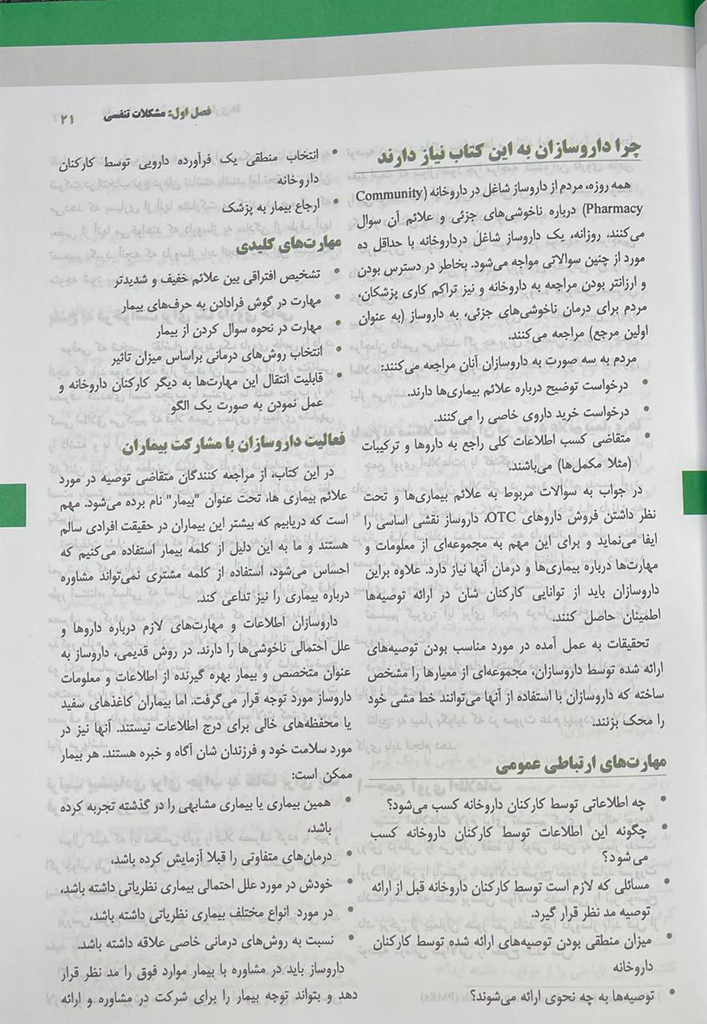 فصل اول: مشکلات تنفسی ۲۱
چرا داروسازان به این کتاب نیاز دارند
همه روزه، مردم از داروساز شاغل در داروخانه (Community
Pharmacy) درباره ناخوشی‌های جزئی و علائم آن سوال
می‌کنند. روزانه، یک داروساز شاغل درداروخانه با حداقل ده
مورد از چنین سوالاتی مواجه می‌شود. بخاطر در دسترس بودن
و ارزانتر بودن مراجعه به داروخانه و نیز تراکم کاری پزشکان،
مردم برای درمان ناخوشی‌های جزئی، به داروساز (به عنوان
اولین مرجع) مراجعه می‌کنند.
مردم به سه صورت به داروسازان آنان مراجعه می‌کنند:
• درخواست توضیح درباره علائم بیماری‌ها دارند.
• درخواست خرید داروی خاصی را می‌کنند.
• متقاضی کسب اطلاعات کلی راجع به داروها و ترکیبات
(مثلا مکمل‌ها) می‌باشند.
در جواب به سوالات مربوط به علائم بیماری‌ها و تحت
نظر داشتن فروش داروهای OTC، داروساز نقشی اساسی را
ایفا می‌نماید و برای این مهم به مجموعه‌ای از معلومات و
مهارت‌ها درباره بیماری‌ها و درمان آنها نیاز دارد. علاوه براین
داروسازان باید از توانایی کارکنان شان در ارائه توصیه‌ها
اطمینان حاصل کنند.
تحقیقات به عمل آمده در مورد مناسب بودن توصیه‌های
ارائه شده توسط داروسازان، مجموعه‌ای از معیارها را مشخص
ساخته که داروسازان با استفاده از آنها می‌توانند خط مشی خود
را محک بزنند.
مهارت‌های ارتباطی عمومی
• چه اطلاعاتی توسط کارکنان داروخانه کسب می‌شود؟
• چگونه این اطلاعات توسط کارکنان داروخانه کسب
می‌شود؟
• مسائلی که لازم است توسط کارکنان داروخانه قبل از ارائه
توصیه مد نظر قرار گیرد.
• میزان منطقی بودن توصیه‌های ارائه شده توسط کارکنان
داروخانه
• توصیه‌ها به چه نحوی ارائه می‌شوند؟
• انتخاب منطقی یک فرآورده دارویی توسط کارکنان
داروخانه
• ارجاع بیمار به پزشک
مهارت‌های کلیدی
• تشخیص افتراقی بین علائم خفیف و شدیدتر
• مهارت در گوش فرادادن به حرف‌های بیمار
• مهارت در نحوه سوال کردن از بیمار
• انتخاب روش‌های درمانی براساس میزان تاثیر
• قابلیت انتقال این مهارت‌ها به دیگر کارکنان داروخانه و
عمل نمودن به صورت یک الگو
فعالیت داروسازان با مشارکت بیماران
در این کتاب، از مراجعه کنندگان متقاضی توصیه در مورد
علائم بیماری ها، تحت عنوان "بیمار" نام برده می‌شود. مهم
است که دریابیم که بیشتر این بیماران در حقیقت افرادی سالم
هستند و ما به این دلیل از کلمه بیمار استفاده می‌کنیم که
احساس می‌شود، استفاده از کلمه مشتری نمی‌تواند مشاوره
درباره بیماری را نیز تداعی کند.
داروسازان اطلاعات و مهارت‌های لازم درباره داروها و
علل احتمالی ناخوشی‌ها را دارند. در روش قدیمی، داروساز به
عنوان متخصص و بیمار بهره گیرنده از اطلاعات و معلومات
داروساز مورد توجه قرار می‌گرفت. اما بیماران کاغذهای سفید
یا محفظه‌های خالی برای درج اطلاعات نیستند. آنها نیز در
مورد سلامت خود و فرزندان شان آگاه و خبره هستند. هر بیمار
ممکن است:
• همین بیماری یا بیماری مشابهی را در گذشته تجربه کرده
باشد،
• درمان‌های متفاوتی را قبلا آزمایش کرده باشد،
• خودش در مورد علل احتمالی بیماری نظریاتی داشته باشد،
• در مورد انواع مختلف بیماری نظریاتی داشته باشد،
• نسبت به روش‌های درمانی خاصی علاقه داشته باشد.
داروساز باید در مشاوره با بیمار موارد فوق را مد نظر قرار
دهد و بتواند توجه بیمار را برای شرکت در مشاوره و ارائه